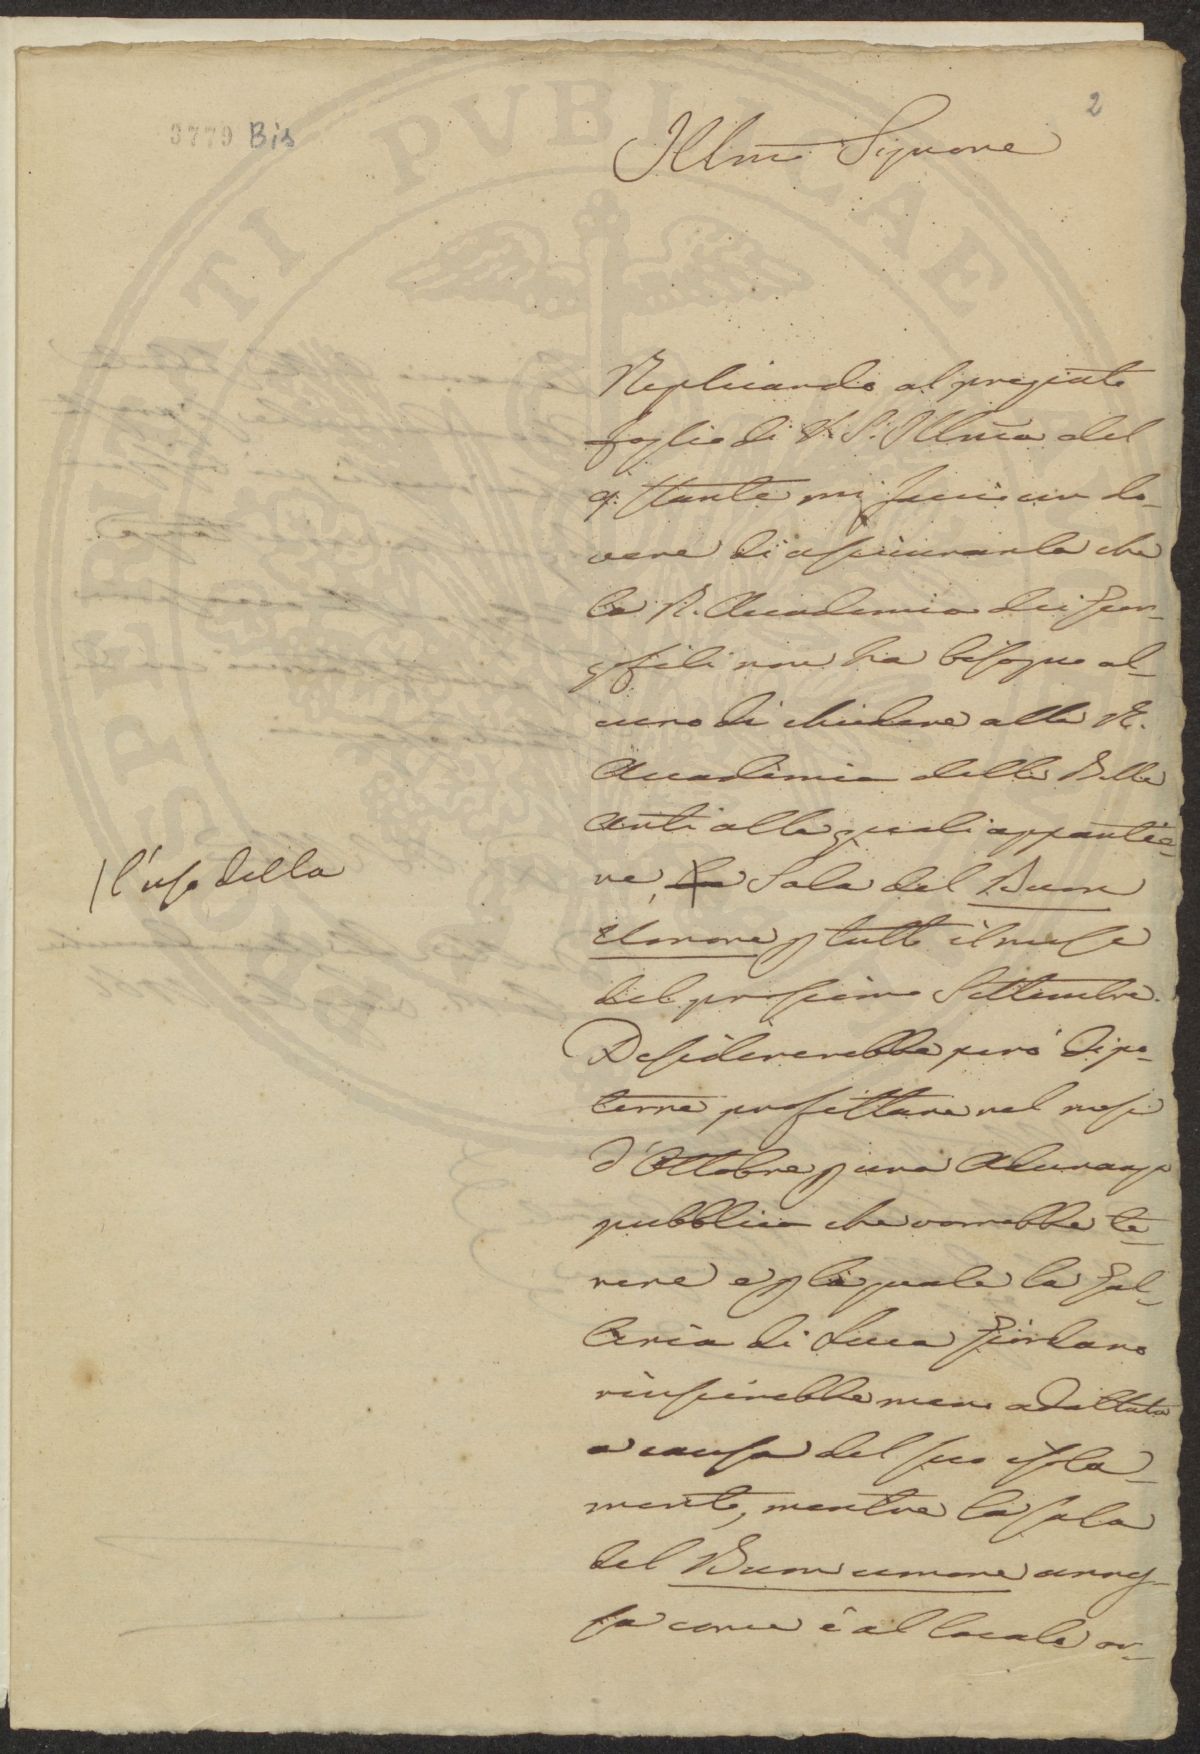 2
3779 Bis
Illmo Signore
Replicando al pregiato
foglio di V. S. Illma del
9 stante mi faccio un do-
vere di assicurarla che
la R. Accademia dei Geor-
gofili non ha bisogno al-
cuno di chiedere alla R.
Accademia delle Belle
Arti alla quale appartie-
ne, la Sala del Buon
/ l'uso della
Umore p tutto il mese
del prossimo Settembre.
Desidererebbe però di po-
terne profittare nel mese
d'Ottobre p una Adunanza
pubblica che vorrebbe te-
nere e p la quale la Gal-
leria di Luca Giordano
riuscirebbe meno adattata
a causa del suo isola-
mento, mentre la sala
del Buon umore annes-
sa come è al locale or-